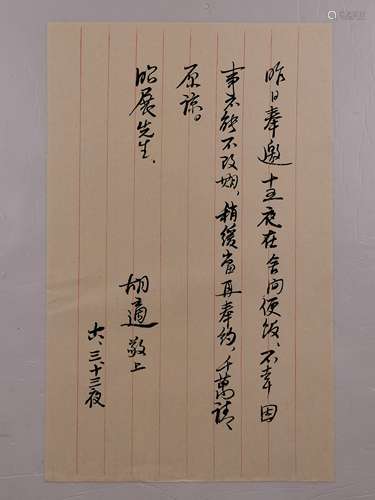 昨日奉邀十五夜在舍间便饭、不幸因
事未能不改期、稍缓當再奉約、千萬請
原諒。
昭展先生、
胡適敬上
六、三、十三夜